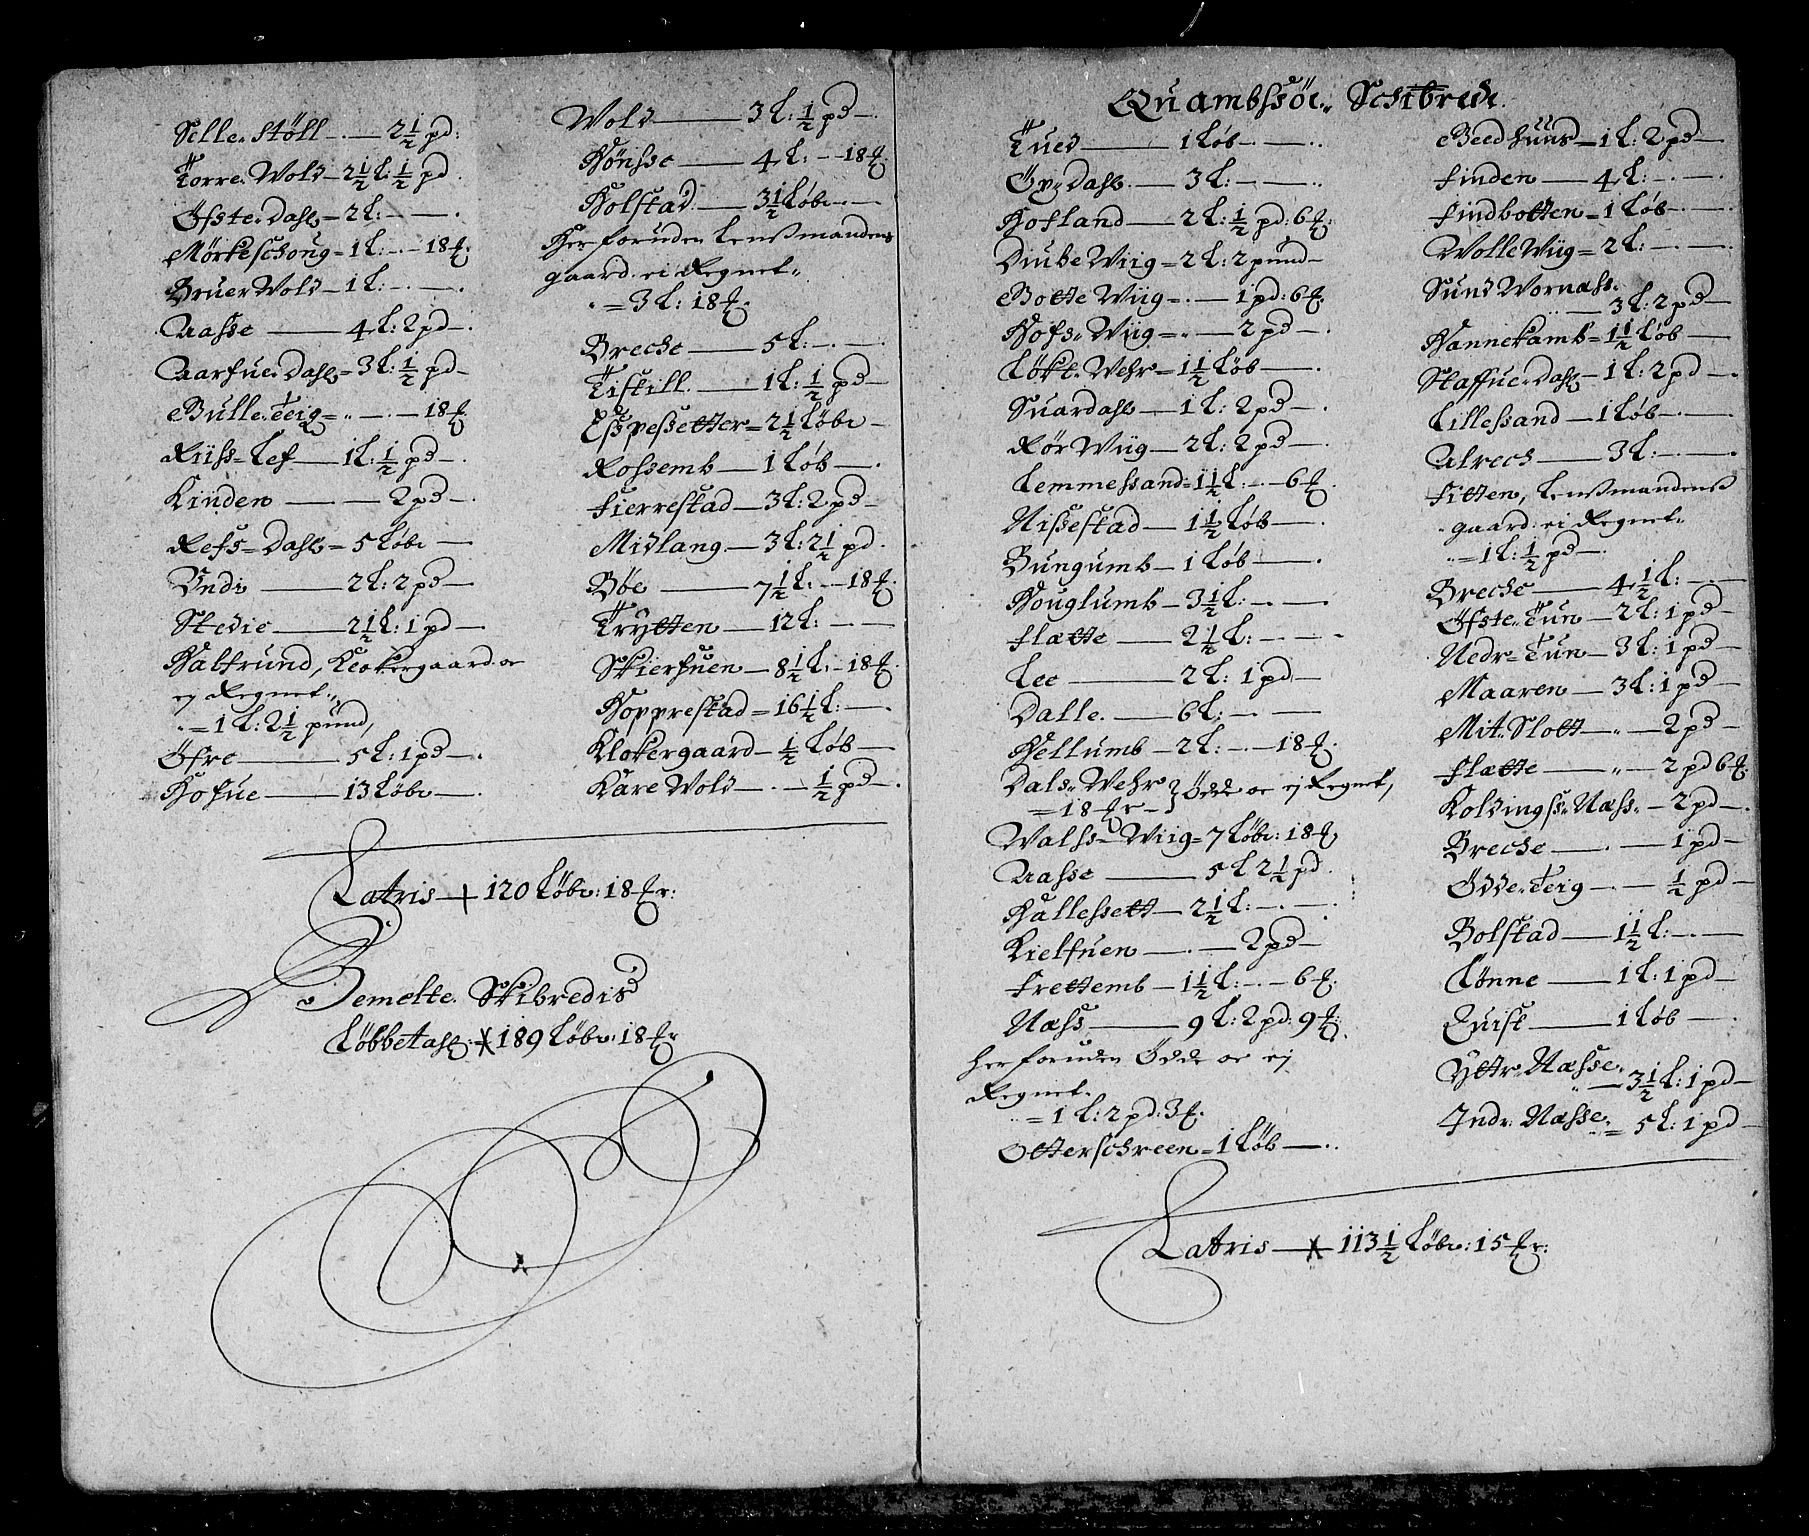 Selle støll - — 2½ pd:
Torre Wold – 2½ L: ½ pd.
Öfste Dahl – 2 L: - — .
Mörkeschoug = 1 L: - - 18 ℔.
Bruer Wold – 1 L: - - — .
Aasse — 4 L: 2 pd — .
Aarhue Dahl = 3 L: ½ pd –
Bulle Teig = „ — - — 18 ℔
Riiss Lef — 1 L: ½ pd — .
Linden — — 2 pd — .
Refs = Dahl = 5 Løbe —
Undi — 2 L: 2 pd —
Skedie — 2½ L: 1 pd —
Haltrund, Klokergaard er
ej Regnet „
„ = 1 L: 2½ pund,
Öfre — 5 L: 1 pd — .
Hofue — 13 Løbe —
Wold — 3 L: ½ pd — .
Hönsse — 4 L: – - 18 ℔.
Holstad — 3½ Løbe - —
Herforuden Lenssmandens
gaard ei Regnet „
„ = 3 L: 18 ℔.
Breche — 5 L: - - — .
Tiskill — 1 L: ½ pd —
Espesetter = 2½ Løbe –
Rossemb — 1 Løb — .
Fierrestad — 3 L: 2 pd —
Midlang — 3 L: 2½ pd.
Böe — 7½ L: – - 18 ℔.
Trytten — 12 L: - - —
Skierhuen — 8½ L: - 18 ℔.
Hopprestad = 16½ L: - — .
Klokergaard – ½ Løb —
Kare Wold — - — ½ pd — .
Latris — 120 Løbe: 18 ℔r:
Bemelte Skibredis
Løbbetahl: 189 Løbe: 18 ℔r
Quambssöe Schibrede.
Tued — 1 Løb - — ..
Öy Dahl — 3 L: - — — ..
Hofland — 2 L: ½ pd: 6 ℔.
Diube Wiig = 2 L: 2 pund –
Botte Wiig = . — 1 pd: 6 ℔.
Hofs Wiig = „ — 2 pd — .
Løkt Wehr = 1½ Løb — .
Suardahl — 1 L: 2 pd — .
Rör Wiig — 2 L: 2 pd — .
Lemmessand = 1½ L: - - 6 ℔.
Nissestad — 1½ Løb — .
Bungumb — 1 Løb — .
Houglumb – 3½ L: - - —
Flætte — 2½ L: - - — -
Lee — 2 L: 1 pd —
Dalle — 6 L: - - —
Hellumb — 2 L: - - — 18 ℔.
Dals Wehr } Ödde er ej Regnet,
= 18 ℔r –
Walss Wiig = 7 Løbe: 18 ℔,
Aasse — 5 L 2½ pd.
Hallessett — 2½ L: - - — .
Kielhuen — . — 2 pd —
Frettemb — 1½ L: - - 6 ℔.
Næss — 9 L: 2 pd: 9 ℔:
Herforuden Ödde er ej
Regnet.
„ = 1 L: 2 pd: 3 ℔.
Otterschreen = 1 Løb — ..
Beedhuus — 1 L: 2 pd —
Finden — 4 L: - — .
Findbotten = 1 Løb - — .
Wolle Wiig = 2 L: - — - — .
Sund Wornæss.
„ — 3 L: 2 pd —
Hannekamb = 1½ Løb —
Staffue Dahl – 1 L: 2 pd — .
Lillessand — 1 Løb - — .
Alrech — 3 L: - - — .
Fitten, Lenssmandenss
gaard ei Regnet „
„ = 1 L: ½ pd — .
Breche — 4½ L: - - —
Öfste Tun — 2 L: 1 pd —
Nedr = Tun — 3 L: 1 pd —
Maaren — 3 L: 1 pd —
Mit Slott — „ — 2 pd —
Flætte — „ — 2 pd 6 ℔.
Koldingss Næss — 2 pd — .
Breche — . — 1 pd —
Ödde Teig — . — ½ pd —
Bolstad — 1½ L: - - —
Lönne — 1 L: 1 pd —
Quist — 1 Løb — .
Yttr Næsse.
„ — 3½ L: 1 pd —
Indr Næsse.
„ = 5 L: 1 pd —
Latris — 113½ Løbe: 15 ℔r: